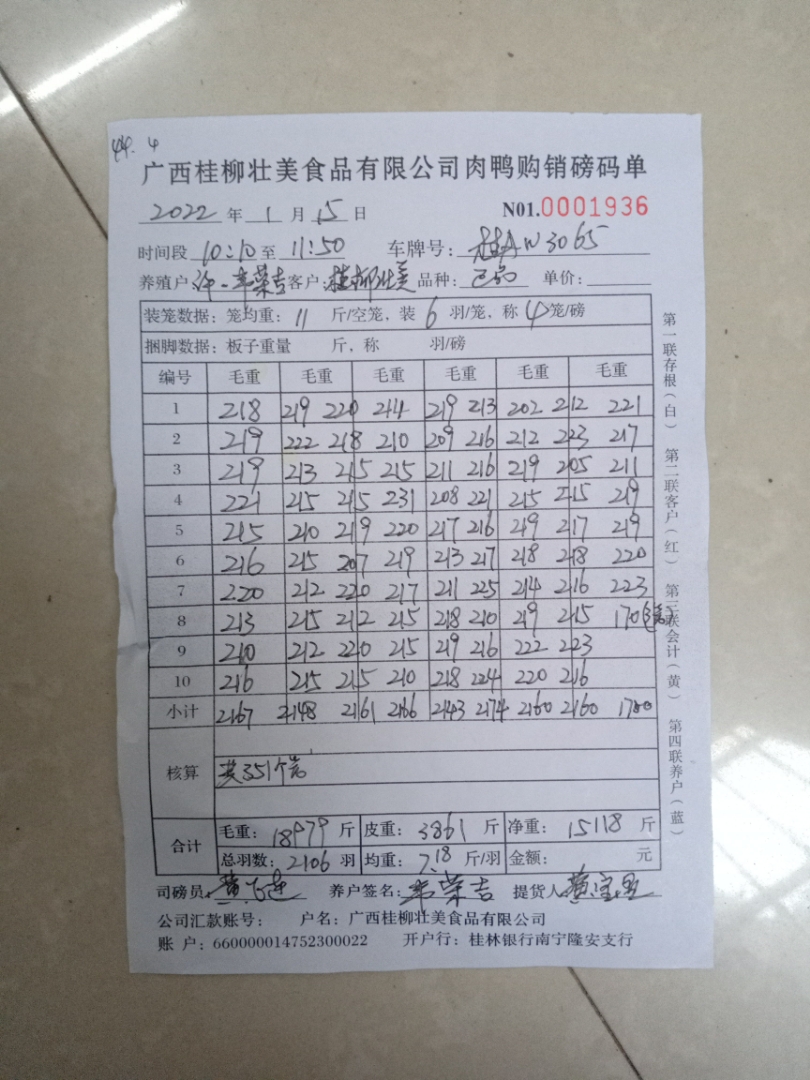 44. 4
广西桂柳壮美食品有限公司肉鸭购销磅码单
2022 年 1 月 15 日 N01.0001936
时间段 10:10 至 11:50 车牌号: 桂AW3065
养殖户: 许一 韦荣吉 客户: 桂柳壮美 品种: 单价:
装笼数据: 笼均重: 11 斤/空笼, 装 6 羽/笼, 称 4 笼/磅
捆脚数据: 板子重量 斤, 称 羽/磅
编号 毛重 毛重 毛重 毛重 毛重 毛重
1 218 219 220 214 219 213 202 212 221
2 219 222 218 210 209 216 212 223 217
3 219 213 215 215 211 216 219 205 211
4 221 215 215 231 208 221 215 215 219
5 215 210 219 220 217 216 219 217 219
6 216 215 207 219 213 217 218 218 220
7 220 212 220 217 211 225 214 216 223
8 213 215 212 215 218 210 219 215 170
9 210 212 220 215 219 216 222 223
10 216 215 215 210 218 224 220 216
小计 2167 2148 2161 2166 2143 2174 2160 2160 1700
核算 共351个笼
合计 毛重: 18979 斤 皮重: 3861 斤 净重: 15118 斤
总羽数: 2106 羽 均重: 7.18 斤/羽 金额: 元
司磅员: 养户签名: 韦荣吉 提货人:
公司汇款账号: 户名: 广西桂柳壮美食品有限公司
账 户: 660000014752300022 开户行: 桂林银行南宁隆安支行
第一联存根(白) 第二联客户(红) 第三联会计(黄) 第四联养户(蓝)